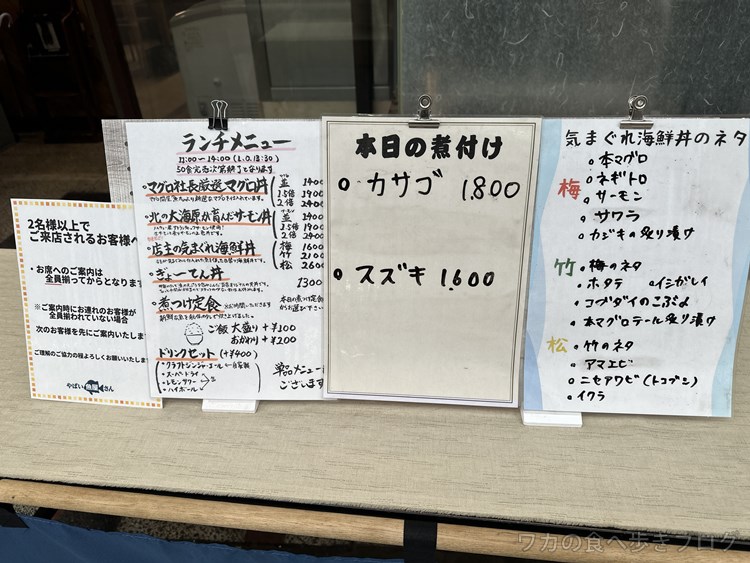 2名様以上で
ご来店されるお客様へ
・お席へのご案内は
全員揃ってからとなります
※ご案内時にお連れのお客様が
全員揃われていない場合
次のお客様を先にご案内いたします
ご理解のご協力の程よろしくお願いいたします
やばい魚屋さん
ランチメニュー
11:00〜14:00 (L.O.13:30)
50食完売次第終了となります
・マグロ社長厳選マグロ丼
並 1400
1.5倍 1900
2倍 2400
・北の大海原が育んだサーモン丼
並 1400
1.5倍 1900
2倍 2400
・店主の気まぐれ海鮮丼
梅 1600
竹 2100
松 2600
・ぎょーてん丼
1300
・煮つけ定食
ご飯 大盛り +¥100
おかわり +¥200
ドリンクセット (+¥400)
・クラフトジンジャーエール
・スーパードライ
・レモンサワー
・ハイボール
単品メニュー
ございます
本日の煮付け
カサゴ 1.800
スズキ 1.600
気まぐれ海鮮丼のネタ
梅
本マグロ
ネギトロ
サーモン
サワラ
カジキの炙り漬け
竹
・梅のネタ
・ホタテ ・イシガレイ
・コブダイのこぶ〆
・本マグロテール炙り漬け
松
・竹のネタ
・アマエビ
・ニセアワビ(トコブシ)
・イクラ
ワカの食べ歩きブログ